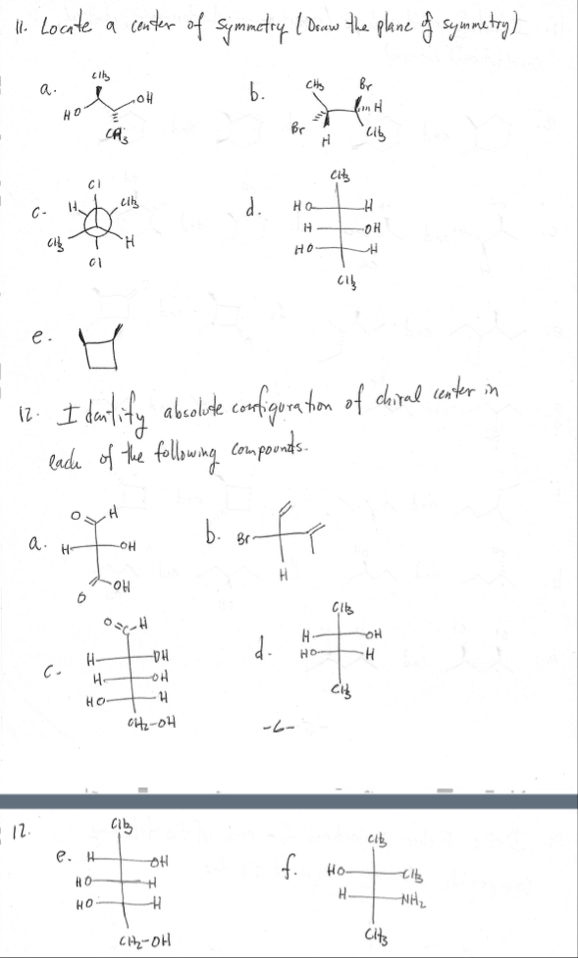 11. Locate a center of symmetry (Draw the plane of symmetry)
a. CH3 HO OH CH3
b. CH3 Br H Br H CH3
c. Cl H CH3 CH3 H Cl
d. CH3
HO H
H OH
HO H
CH3
e.
12. Identify absolute configuration of chiral center in
each of the following compounds.
a. O H
H OH
O OH
b. Br
H
c. O=C-H
H OH
H OH
HO H
CH2-OH
d. CH3
H OH
HO H
CH3
-6-
12.
e. CH3
H OH
HO H
HO H
CH2-OH
f. CH3
HO CH3
H NH2
CH3